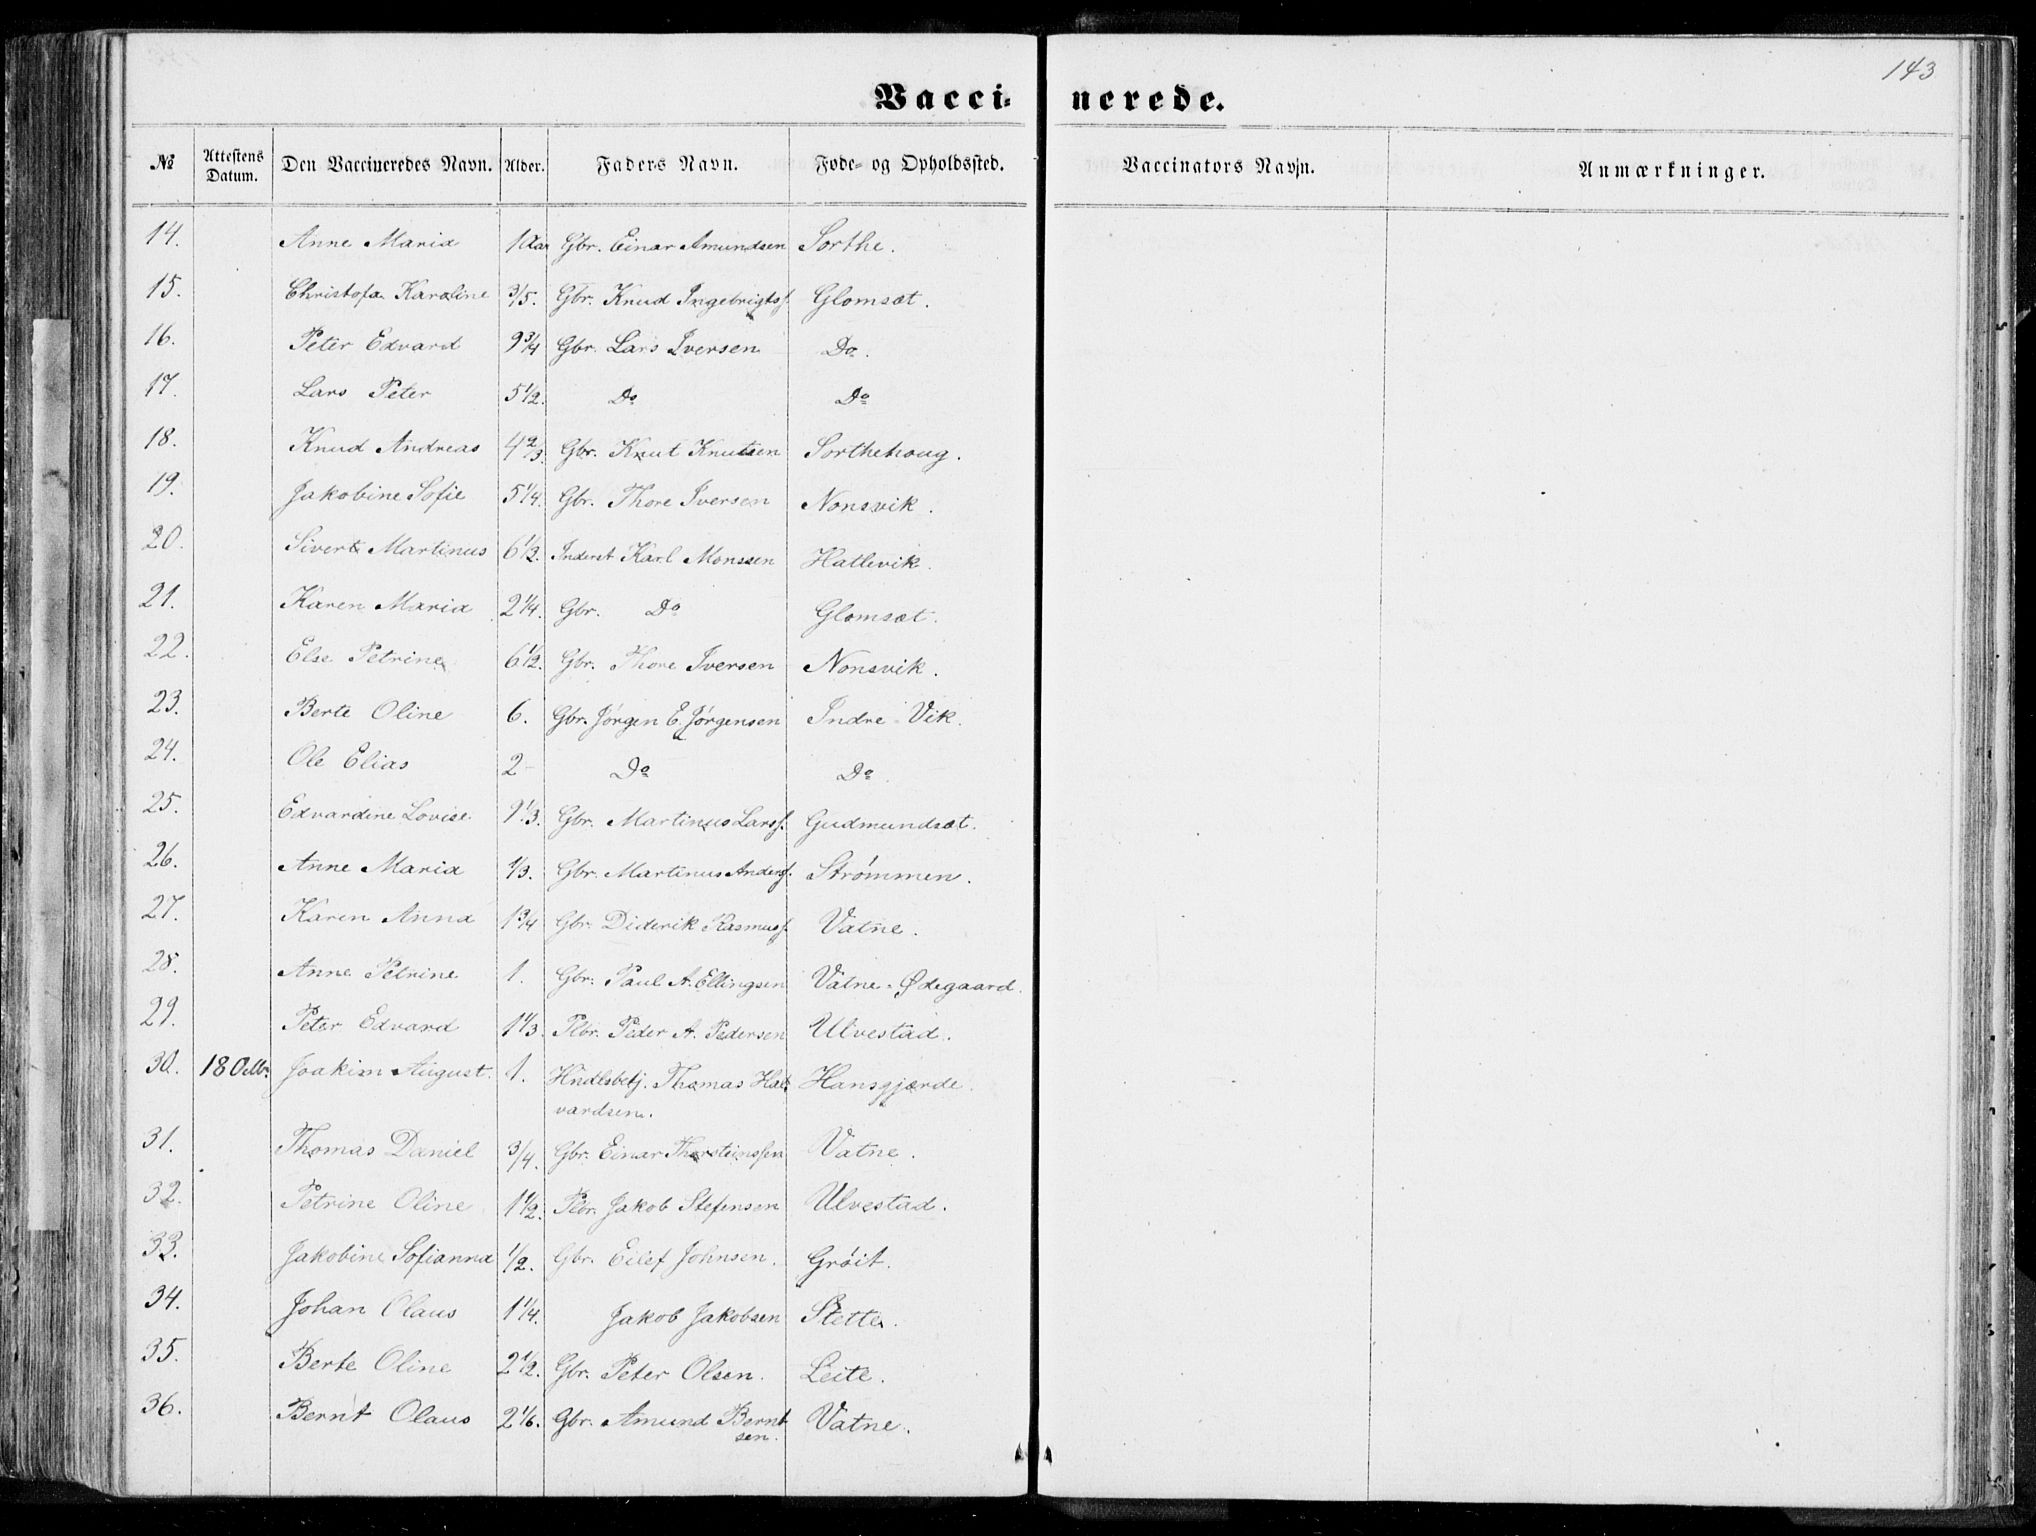 143
Vacci- nerede.
№ Attestens Datum. Den Vaccineredes Navn. Alder. Faders Navn. Føde- og Opholdssted. Vaccinators Navn. Anmærkninger.
14. Anne Maria 1 Aar Gbr. Einar Amundsen Sorthe.
15. Christofa Karoline 3/5. Gbr. Knud Ingebrigtss. Glomsæt.
16. Peter Edvard 9 3/4 Gbr. Lars Iversen Do.
17. Lars Peter 5 1/2. Do Do
18. Knud Andreas 4 2/3. Gbr. Knut Knutsen Sorthehoug.
19. Jakobine Sofie 5 1/4. Gbr. Thore Iversen Nonsvik.
20. Sivert Martinus 6 1/2. Inderst Karl Monssen Hatlevik.
21. Karen Maria 2 1/4. Gbr. Do Glomsæt.
22. Else Petrine 6 1/2. Gbr. Thore Iversen Nonsvik.
23. Berte Oline 6. Gbr. Jørgen E. Jørgensen Indre-Vik.
24. Ole Elias 2 - Do Do.
25. Edvardine Lovise 1/3. Gbr. Martinus Larss. Gudmundsæt.
26. Anne Maria 1/3. Gbr. Martinus Anderss. Strømmen.
27. Karen Anna 1 3/4 Gbr. Diderik Rasmuss. Vatne.
28. Anne Petrine 1. Gbr. Paul A. Ellingsen Vatne-Ødegaard.
29. Peter Edvard 1 1/3. Plbr. Peder A. Pedersen Ulvestad.
30. 18 Octbr. Joakim August. 1. Hndlsbetj. Thomas Hal- Hansgjærde.
vardsen.
31. Thomas Daniel 3/4. Gbr. Einar Thorsteinssen Vatne.
32. Petrine Oline 1 1/2. Plbr. Jakob Stefensen Ulvestad.
33. Jakobine Sofianna 1/2. Gbr. Eilef Johnsen. Grøit.
34. Johan Olaus 1 1/4. Jakob Jakobsen Stette.
35. Berte Oline 2 1/2. Gbr. Peter Olsen. Leite.
36. Bernt Olaus 2 1/6. Gbr. Amund Bernt- Vatne.
sen.